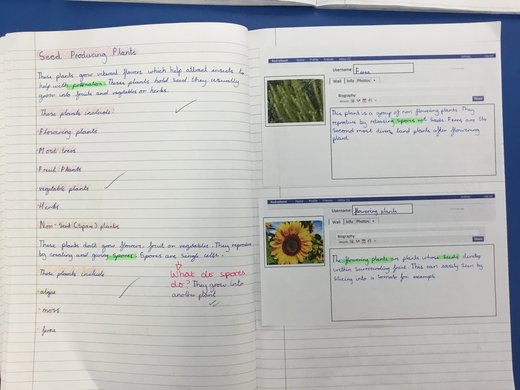 Seed Producing Plants
These plants grow vibrant flowers which help attract insects to
help with pollination. These plants hold seed they usually
grow into fruits and vegetables or herbs.
These plants include:
Flowering plants
Most trees
Fruit Plants
vegetable plants
Herbs
Non-Seed (Spore) plants
These plants don't grow flowers, fruit or vegetables. They reproduce
by creating and giving spores. Spores are single cells.
These plants include
algae
moss
ferns
What do spores
do? They grow into
another plant
Home Profile Friends Inbox
Username Ferns
Wall Info Photos +
Biography
Share
This plant is a group of non flowering plants. They
reproduce by releasing spores not seeds. Ferns are the
second most divers land plants after flowering
plant
Home Profile Friends Inbox
Username flowering plants
Wall Info Photos +
Biography
Share
The flowering plants are plants whose seeds develop
within surrounding fruit. This can easily seen by
slicing into a tomato for example